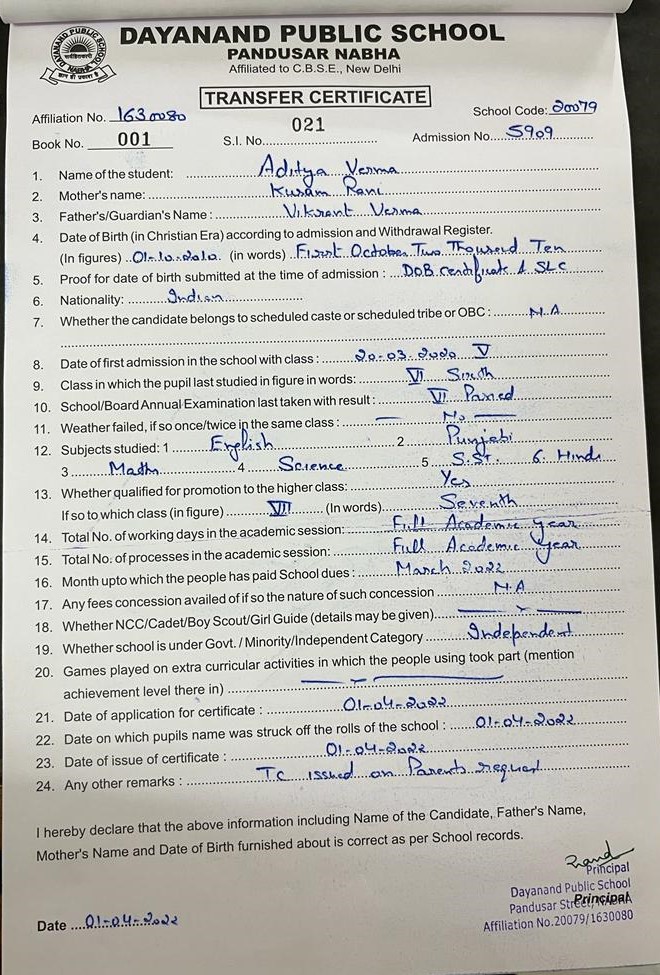 DAYANAND PUBLIC SCHOOL
PANDUSAR NABHA
Affiliated to C.B.S.E., New Delhi
TRANSFER CERTIFICATE
Affiliation No. 1630080 School Code: 20079
Book No. 001 S.I. No. 021 Admission No. 5909
1. Name of the student: Aditya Verma
2. Mother's name: Kusam Rani
3. Father's/Guardian's Name : Vikrant Verma
4. Date of Birth (in Christian Era) according to admission and Withdrawal Register.
(In figures) 01-10-2010. (in words) First October Two Thousand Ten
5. Proof for date of birth submitted at the time of admission : DOB certificate & SLC
6. Nationality: Indian
7. Whether the candidate belongs to scheduled caste or scheduled tribe or OBC : N.A
8. Date of first admission in the school with class : 20-03-2020 V
9. Class in which the pupil last studied in figure in words: VI Sixth
10. School/Board Annual Examination last taken with result : VI Passed
11. Weather failed, if so once/twice in the same class : — No —
12. Subjects studied: 1 English 2 Punjabi
3 Maths 4 Science 5 S.ST. 6. Hindi
13. Whether qualified for promotion to the higher class: Yes
If so to which class (in figure) VII (In words) Seventh
14. Total No. of working days in the academic session: Full Academic year
15. Total No. of processes in the academic session: Full Academic year
16. Month upto which the people has paid School dues : March 2022
17. Any fees concession availed of if so the nature of such concession N.A
18. Whether NCC/Cadet/Boy Scout/Girl Guide (details may be given)
19. Whether school is under Govt. / Minority/Independent Category Independent
20. Games played on extra curricular activities in which the people using took part (mention
achievement level there in)
21. Date of application for certificate : 01-04-2022
22. Date on which pupils name was struck off the rolls of the school : 01-04-2022
23. Date of issue of certificate : 01-04-2022
24. Any other remarks : TC issued on Parents request
I hereby declare that the above information including Name of the Candidate, Father's Name,
Mother's Name and Date of Birth furnished about is correct as per School records.
Principal
Dayanand Public School
Pandusar Street, NABHA
Principal
Affiliation No.20079/1630080
Date 01-04-2022